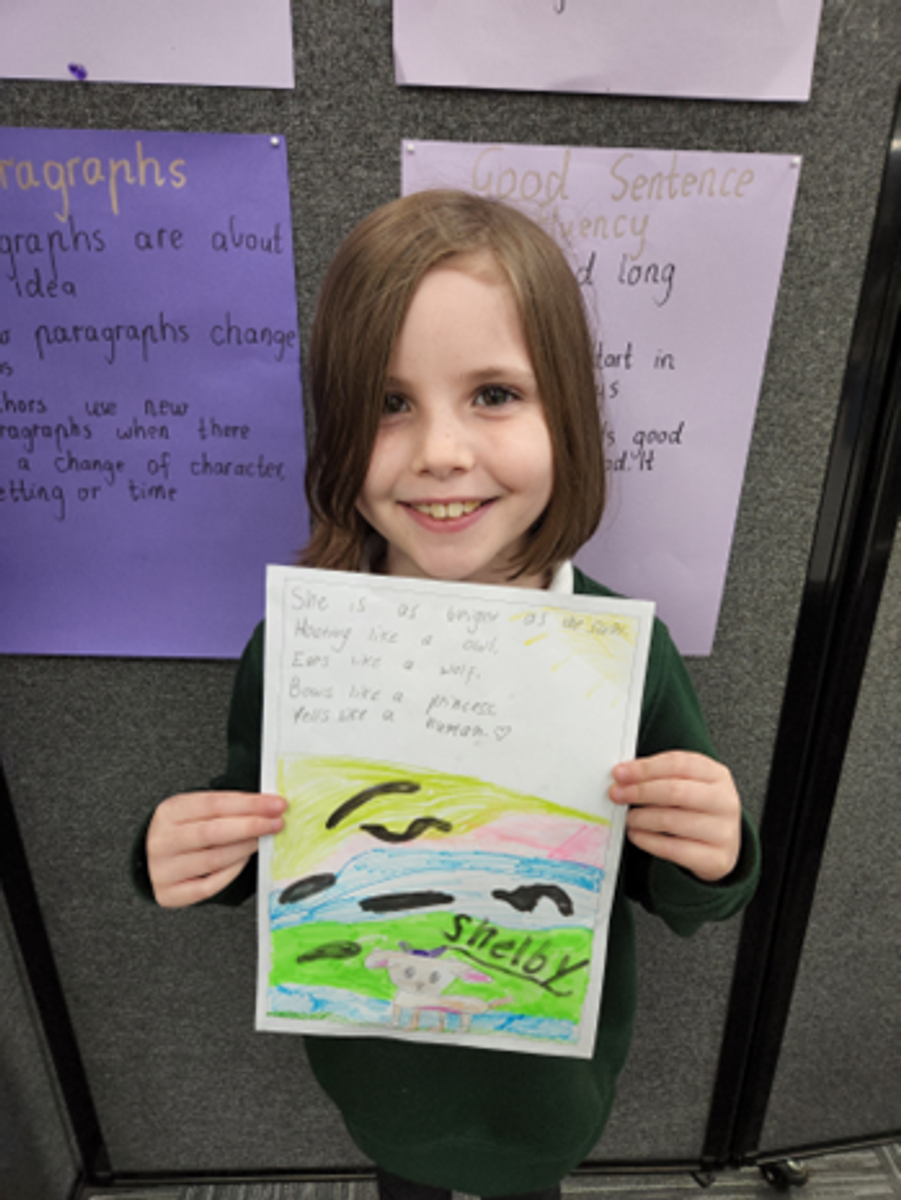 ragraphs
graphs are about
idea
paragraphs change
hors use new
ragraphs when there
a change of character,
etting or time
Good Sentence
uency
d long
tart in
ys
s good
od. It
She is as as
Hooting like a owl.
Ears like a wolf.
Bows like a princess
Yells like a human. ♡
Shelby